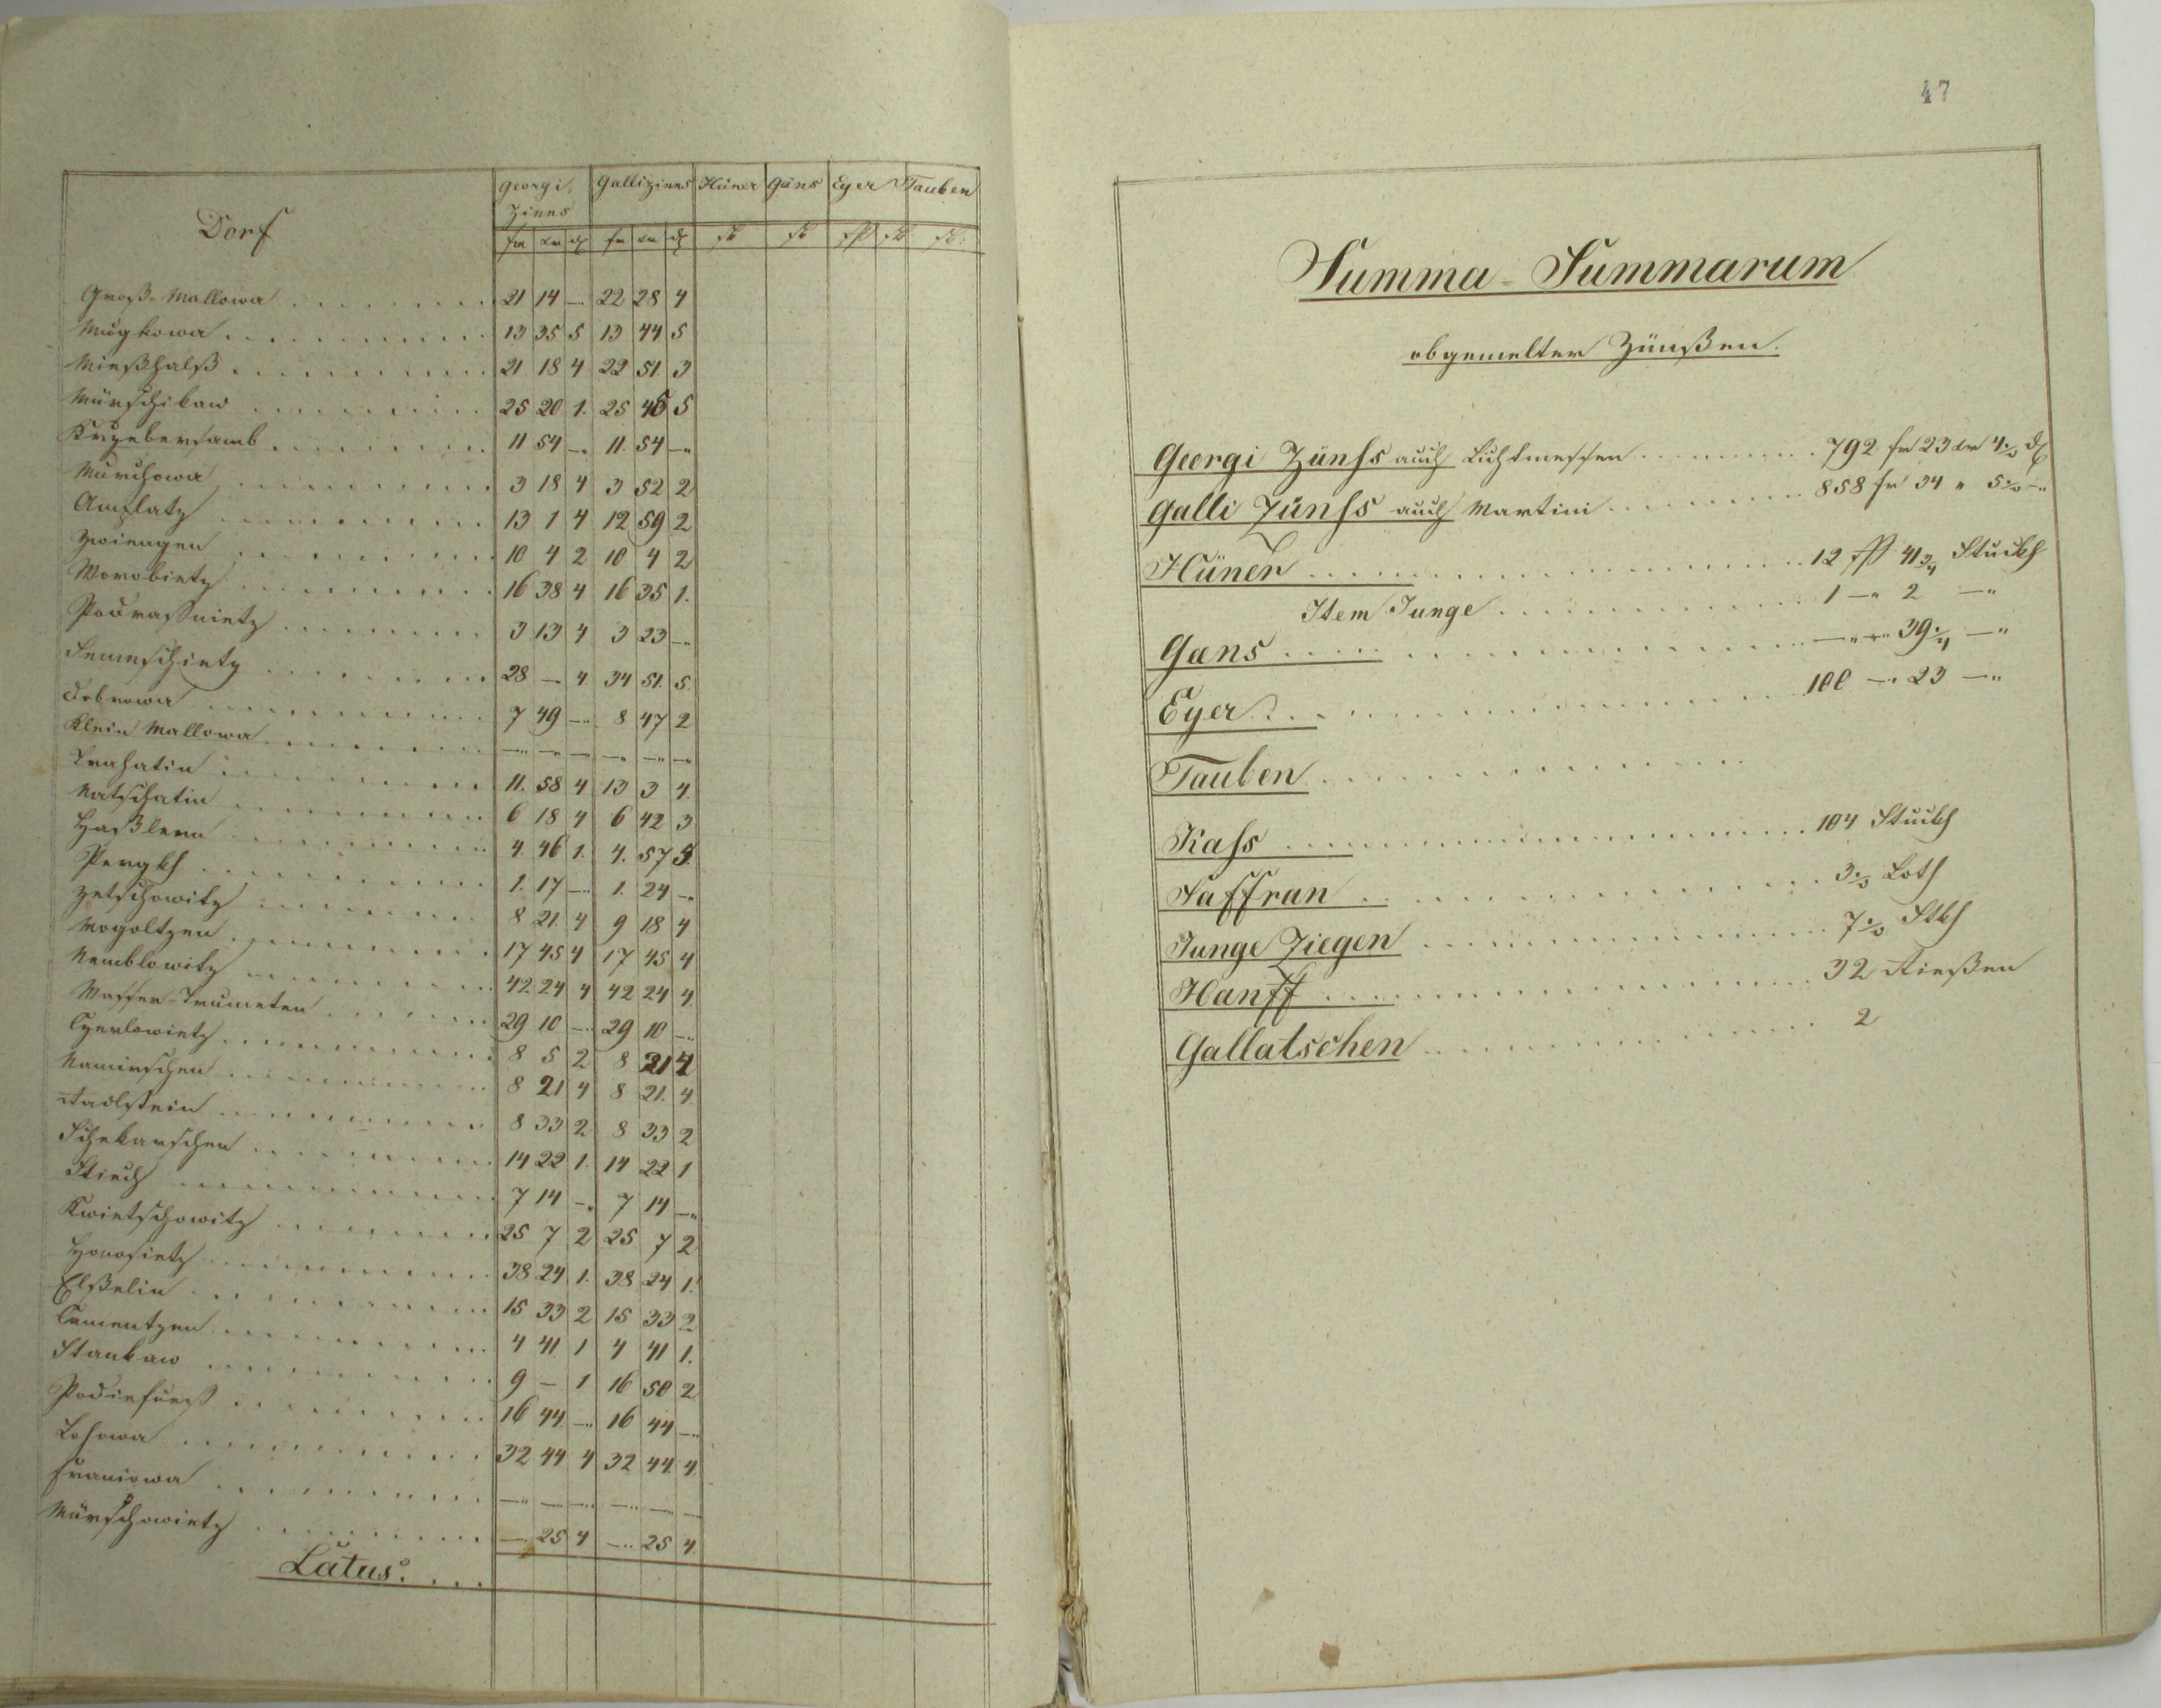 Dorf georgi: Zinns Gallizinns Hüner Gäns Eyer Tauben
fr kr d fr kr d st st ßß st st:
Groß-Mallowa 21 14 — 22 28 4
Mugkowa 13 35 5 13 44 5
Mießhalß 21 18 4 22 51. 3
Mürschikaw 25 20 1. 25 45 5
Krzebersamb 11 54 — 11. 54 —
Murchowa 3 18 4 3 52 2
Amplatz 13 1 4 12 59 2
Zwiengen 10 4 2 10 4 2
Worobietz 16 38 4 16 35 1.
Podrassnietz 3 13 4 3 23 —
Semeschietz 28 — 4. 34 51. 5.
Dobrowa 7 49 — 8 47 2
Klein Mallowa — — — — — —
Trahatin 11. 58 4 13 3 4.
Natschatin 6 18 4 6 42 3
Haßlern 4. 46 1. 4. 57 5.
Pergkh 1. 17 — 1. 24 —
Zetschowitz 8 21. 4 9 18 4
Mogoltzen 17 45 4 17 45 4
Nemblowitz 42 24 4 42 24 4
Wasser-Trumeten 29 10 — 29 10 —
Czerlowietz 8 5 2 8 21 4
Namirschen 8 21 4 8 21. 4
Stadlstein 8 33 2 8 33 2
Schekarschen 14 22 1. 14 22 1
Stiech 7 14 — 7 14 —
Kwietschowitz 25 7 2 25 7 2
Honosietz 38 24 1. 38 24 1.
Elßelin 15 33 2 15 33 2
Camentzen 4 41 1 4 41 1.
Stankaw 9 — 1 16 50 2
Podiefuß 16 44 — 16 44 —
Lohowa 32 44 4 32 44. 4
Franiowa — — — — — —
Mürschowietz — 25 4 — 25 4.
Latus:
47
Summa-Summarum
obgemelter Zünßen.
Georgi Zünss auch Lichtmessen 792 fr 23 kr 4 d
Galli Zünss auch Martini 858 fr 34 " 5 —"
Hüner 12 ßß 41 3/4 Stuckh
Item Junge 1 —" 2 —"
Gæns —" —" 39 —"
Eyer 100 —" 23 —"
Tauben
Kass 104 Stuckh
Saffran 3 Loth
Junge Ziegen 7 Stkh
Hanff 32 Rießen
Gallatschen 2